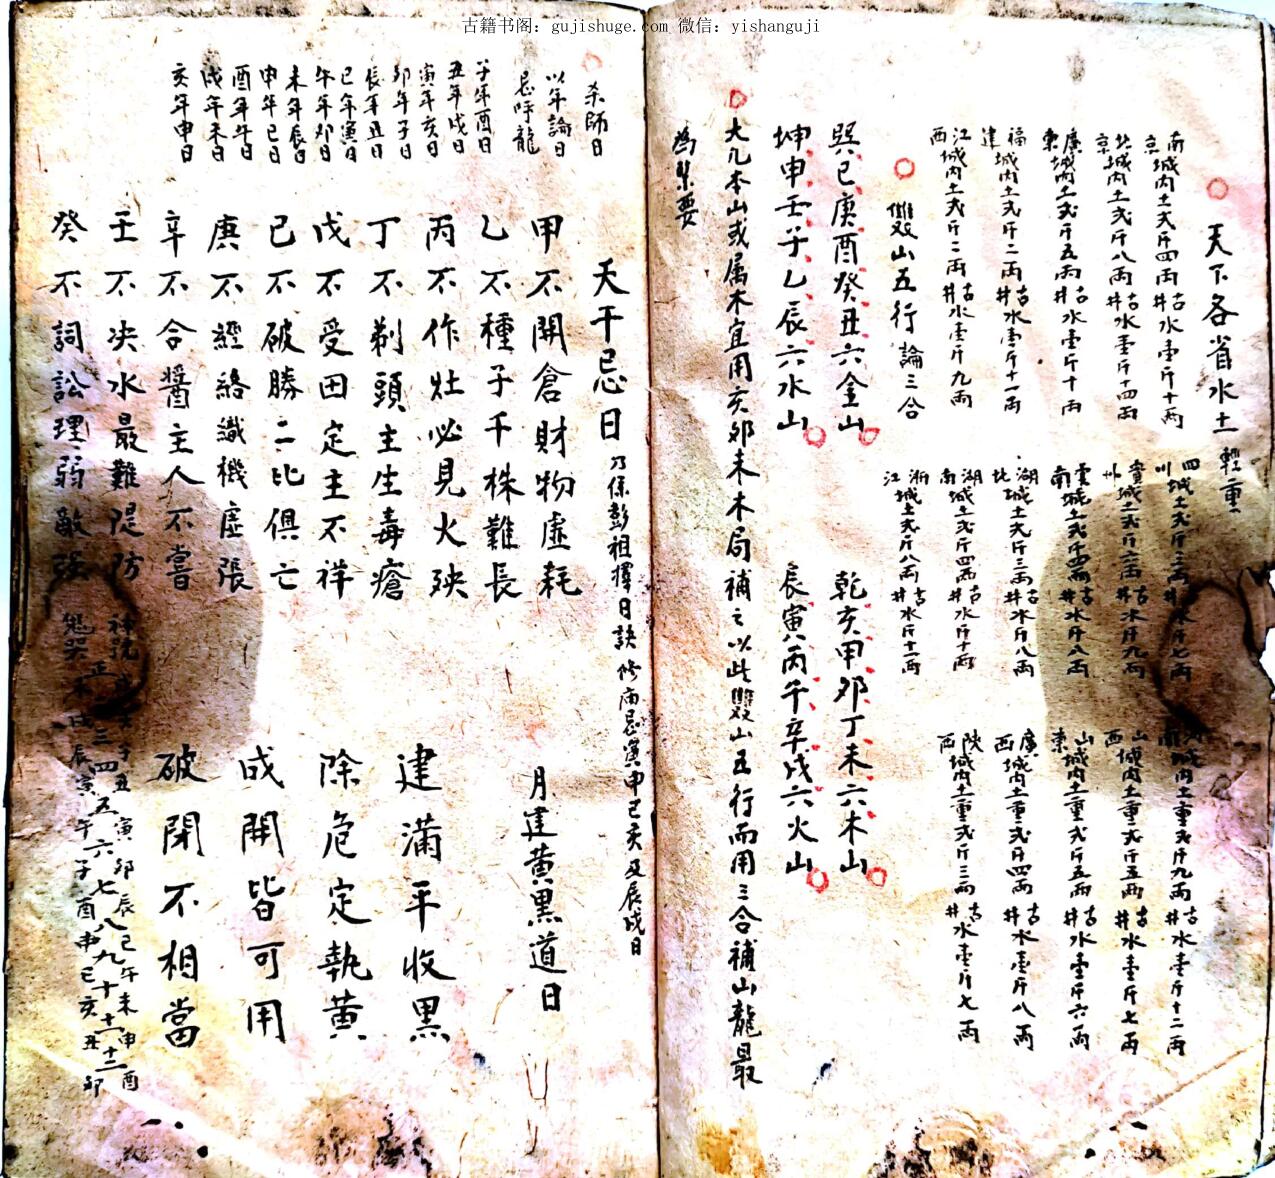 古籍书阁：gujishuge.com 微信：yishanguji
天下各省水土輕重
南京城内土弍斤四兩古井水壹斤十兩
北京城内土弍斤八兩古井水壹斤十四兩
廣東城内土弍斤五兩古井水壹斤十兩
福建城内土弍斤二兩古井水壹斤十一兩
江西城内土弍斤二兩古井水壹斤九兩
四川城土弍斤三兩古井水斤七兩
貴州城土弍斤六兩古井水斤九兩
雲南城土弍斤四兩古井水斤八兩
湖北城土弍斤三兩古井水斤八兩
湖南城土弍斤四兩古井水斤十兩
浙江城土弍斤八兩古井水斤十一兩
南城内土重弍斤九兩古井水壹斤十二兩
山西城内土重弍斤五兩古井水壹斤七兩
山東城内土重弍斤五兩古井水壹斤六兩
廣西城内土重弍斤四兩古井水壹斤八兩
陝西城内土重弍斤三兩古井水壹斤七兩
雙山五行論三合
巽巳庚酉癸丑六金山
乾亥甲卯丁未六木山
坤申壬子乙辰六水山
艮寅丙午辛戌六火山
大凡本山或属木宜用亥卯未木局補之以此雙山五行而用三合補山龍最
為緊要
杀師日
以年論日
忌呼龍
子年酉日
丑年戌日
寅年亥日
卯年子日
辰年丑日
巳年寅日
午年卯日
未年辰日
申年巳日
酉年午日
戌年未日
亥年申日
天干忌日 乃係彭祖擇日訣 修廟忌寅申巳亥及辰戌日
甲不開倉財物虛耗
乙不種子千株難長
丙不作灶必見火殃
丁不剃頭主生毒瘡
戊不受田定主不祥
己不破勝二比俱亡
庚不經絡織機虛張
辛不合醬主人不嘗
壬不决水最難隄防
癸不詞訟理弱敵強
月建黄黑道日
建滿平收黑
除危定執黄
成開皆可用
破閉不相當
神號 戌亥子丑寅卯辰巳午未申酉
正二三四五六七八九十十一十二
鬼哭 未戌辰寅午子酉申巳亥丑卯